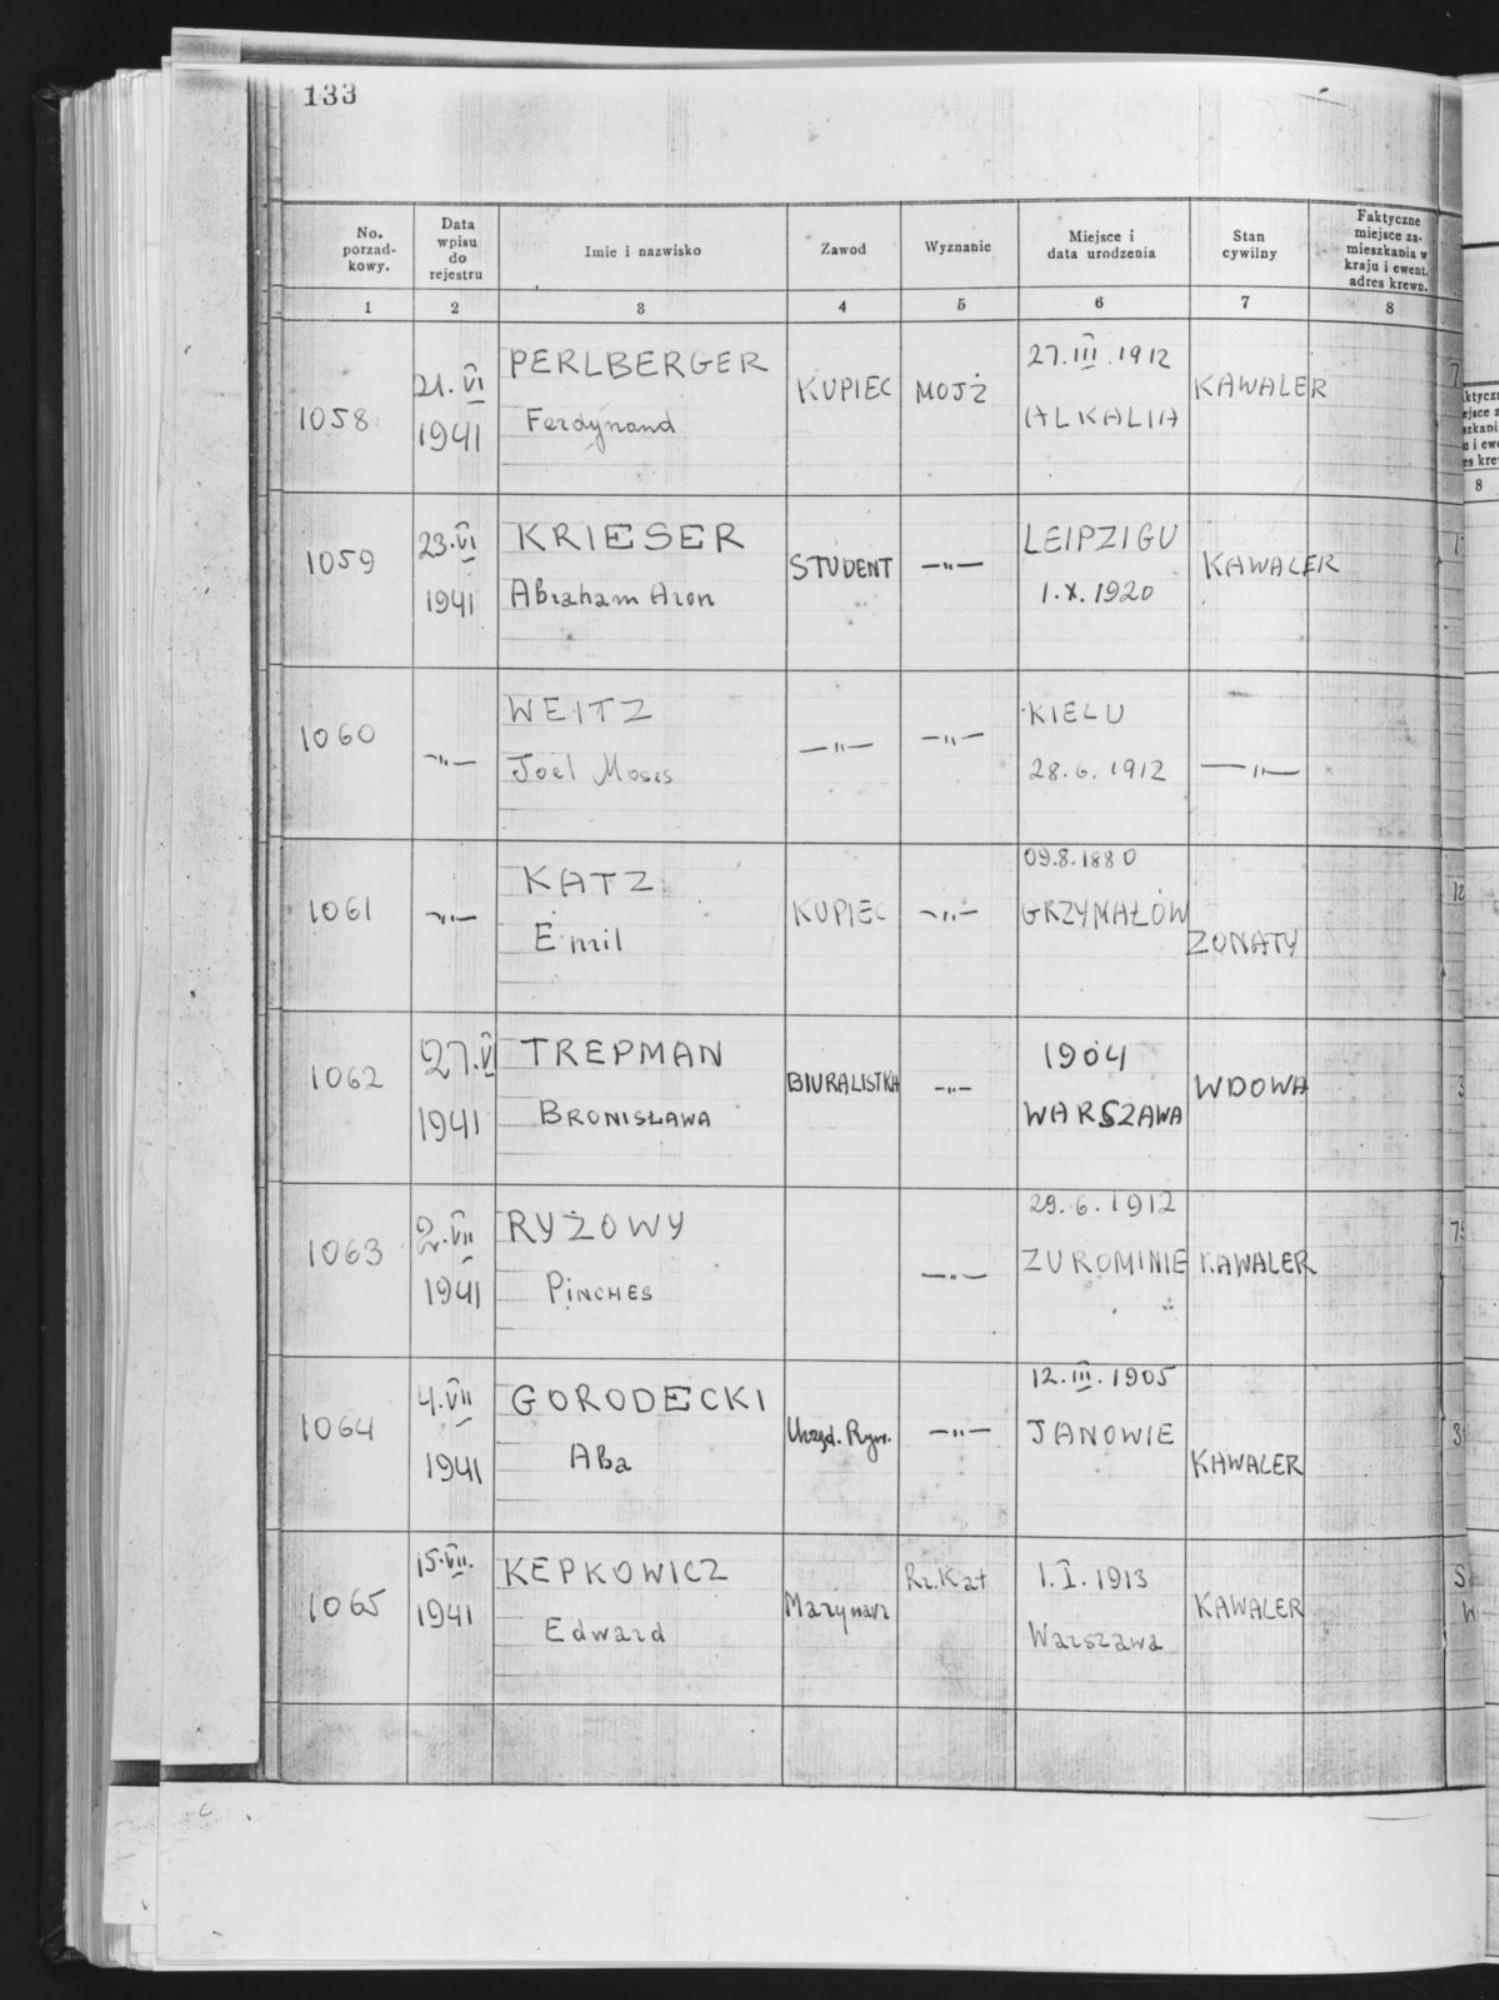 133
No. porzad- kowy.
Data wpisu do rejestru
Imie i nazwisko
Zawod
Wyznanie
Miejsce i data urodzenia
Stan cywilny
Faktyczne miejsce za- mieszkania w kraju i ewent. adres krewn.
1 2 3 4 5 6 7 8
1058 21.VI 1941 PERLBERGER Ferdynand KUPIEC MOJŻ 27.III.1912 KAWALER
1059 23.VI 1941 KRIESER Abraham Aron STUDENT —"— LEIPZIGU 1.X.1920 KAWALER
1060 —"— WEITZ Joel Moses —"— —"— KIELU 28.6.1912 —"—
1061 —"— KATZ Emil KUPIEC —"— 09.8.1880 GRZYMAŁÓW ZONATY
1062 27.VI 1941 TREPMAN BRONISŁAWA BIURALISTKA —"— 1904 WARSZAWA WDOWA
1063 2.VII 1941 RYŻOWY PINCHES —"— 29.6.1912 ZUROMINIE KAWALER
1064 4.VII 1941 GORODECKI ABa Urzęd. —"— 12.III.1905 JANOWIE KAWALER
1065 15.VII. 1941 KEPKOWICZ Edward Marynarz Rz.Kat 1.I.1913 Warszawa KAWALER